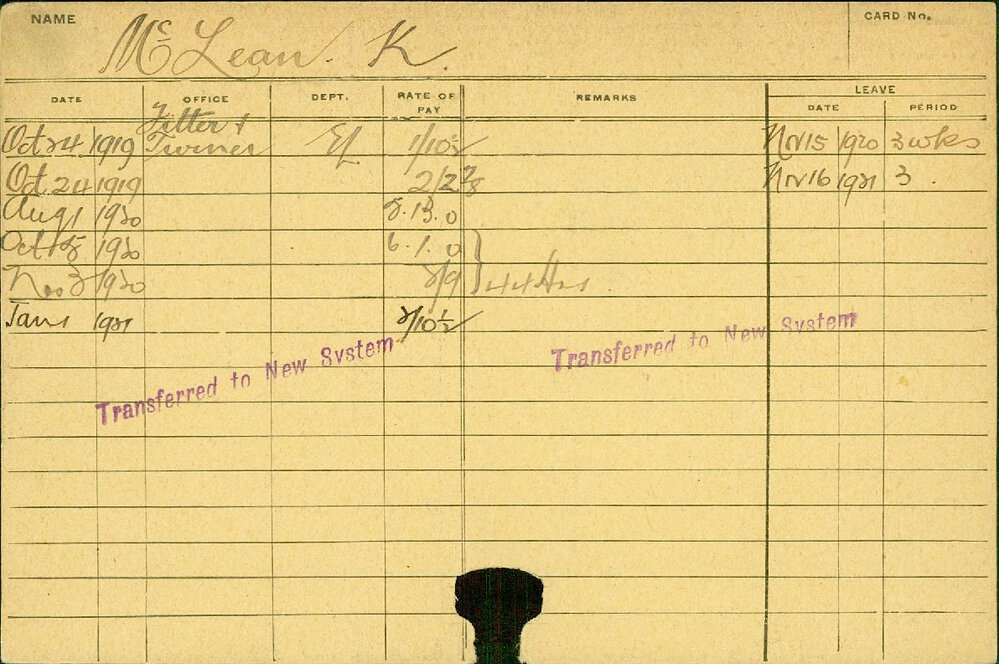 NAME McLean. K. CARD No.
DATE OFFICE DEPT. RATE OF PAY REMARKS LEAVE
DATE PERIOD
Fitter &
Oct 24 1919 Turner EL 1/10½ Nov 15 1920 3 wks
Oct 24 1919 2/2⅞ Nov 16 1921 3.
Aug 1 1920 5.13.0
Oct 1920 6.1.0
Nov 3 1920 2/9 } 44 Hrs
Jan 1 1921 2/10½
Transferred to New System Transferred to New System